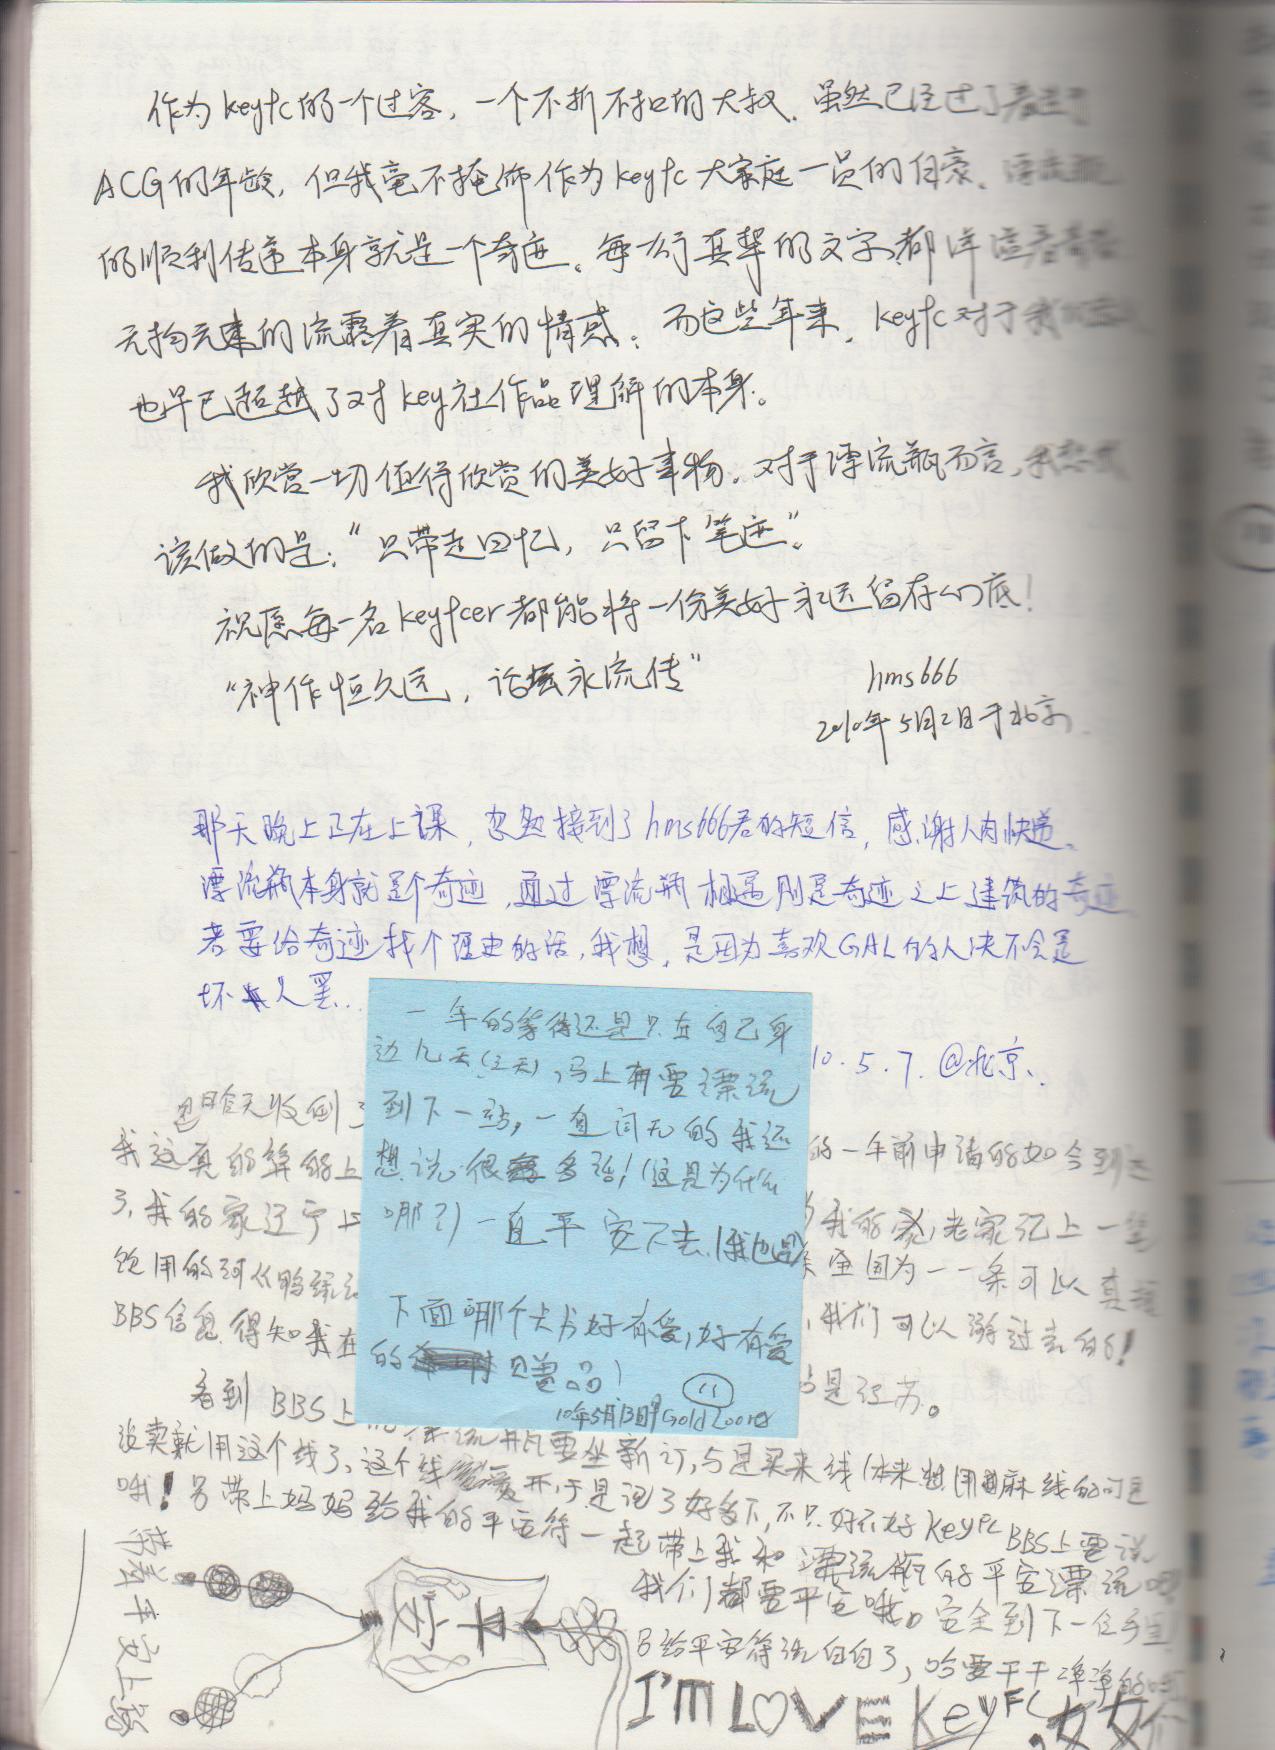 作为keyfc的一个过客，一个不折不扣的大叔．虽然已经过了
ACG的年龄，但我毫不掩饰作为keyfc大家庭一员的自豪．漂流瓶
的顺利传递本身就是一个奇迹。每一行真挚的文字都洋溢着
无拘无束的流露着真实的情感；而这些年来，keyfc对于我
也早已超越了对key社作品理解的本身。
我欣赏一切值得欣赏的美好事物．对于漂流瓶而言，我
该做的是：“只带走回忆，只留下笔迹”。
祝愿每一名keyfcer都能将一份美好永远留存心底！
“神作恒久远，话坛永流传”
hms666
2010年5月2日于北京
那天晚上正在上课，忽然接到了hms666君的短信，感谢人肉快递。
漂流瓶本身就是个奇迹，通过漂流瓶相遇则是奇迹之上建筑的奇迹
若要给奇迹找个理由的话，我想，是因为喜欢GAL的人决不会是
坏人罢..
10.5.7.@北京.
一年的等待还是只在自己身
边几天(三天)，马上有要漂流
到下一站，一直词无的我还
想说很多话！(这是为什么
哪？)一直平安下去！(我也是)
下面哪个卡片好有爱，好有爱
的赠品！
11
10年5月13日 Gold
昨天收到了
我这真的算的上 的一年前申请的如今到达
了，我的家辽宁 我的家，老家记上一笔
饮用的河 因为一一条可以真
BBS信息．得知我在 ，我们可以游过去的！
看到BBS上 是江苏。
说漂流瓶要坐新订，与是买来线(本来想用麻线的可是
没卖就用这个线了、这个线 于是记了好多下，不只好不好KeyFC BBS上要说
哦！另带上妈妈给我的平安符一起带上我和漂流瓶的平安漂流吧！
我们都要平安哦。安全到下一位手里！
另给平安符洗白白了，哈要干干净净的
带着平安上路
I'M L♡VE KeyFC